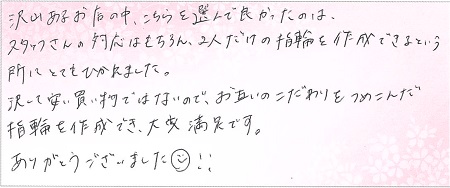 沢山あるお店の中、こちらを選んで良かったのは、
スタッフさんの対応はもちろん、2人だけの指輪を作成できるという
所にとてもひかれました。
決して安い買い物ではないので、お互いのこだわりをつめこんだ
指輪を作成でき、大変満足です。
ありがとうございました☺!!